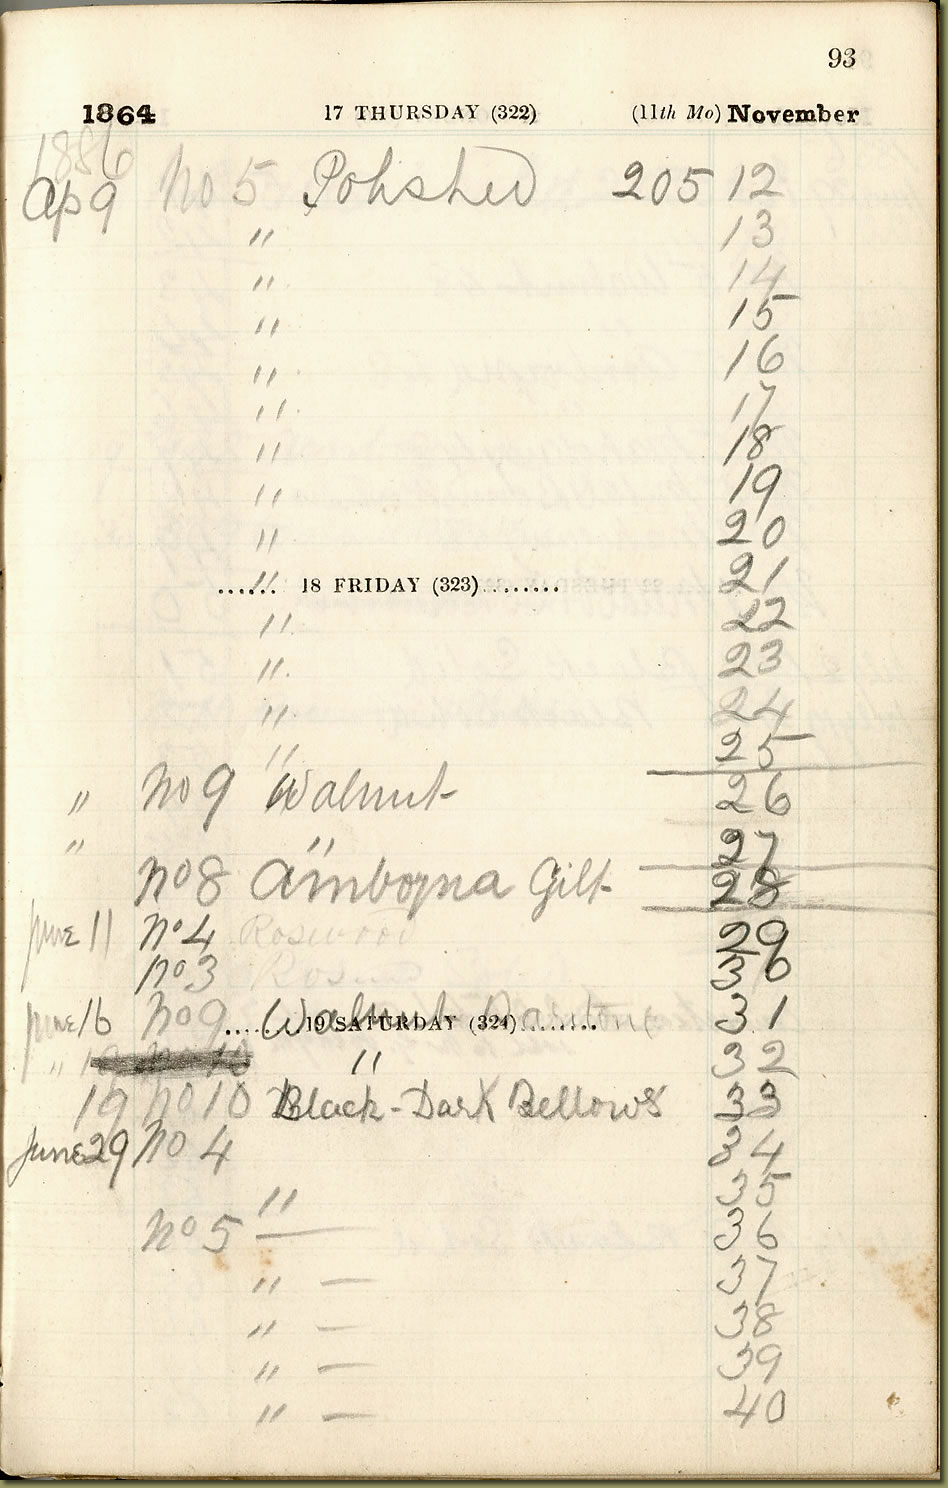 93
1864 17 THURSDAY (322) (11th Mo) November
1886
Ap 9 No 5 Polished 205 12
" 13
" 14
" 15
" 16
" 17
" 18
" 19
" 20
...... " 18 FRIDAY (323)........ 21
" 22
" 23
" 24
" 25
" No 9 Walnut 26
" " 27
No 8 Amboyna Gilt 28
June 11 No 4 Rosewood 29
No 3 30
June 16 No 9 Walnut 31
19 SATURDAY (324)........
" " 32
19 No 10 Black - Dark Bellows 33
June 29 No 4 34
" 35
No 5 — 36
" — 37
" — 38
" — 39
" — 40